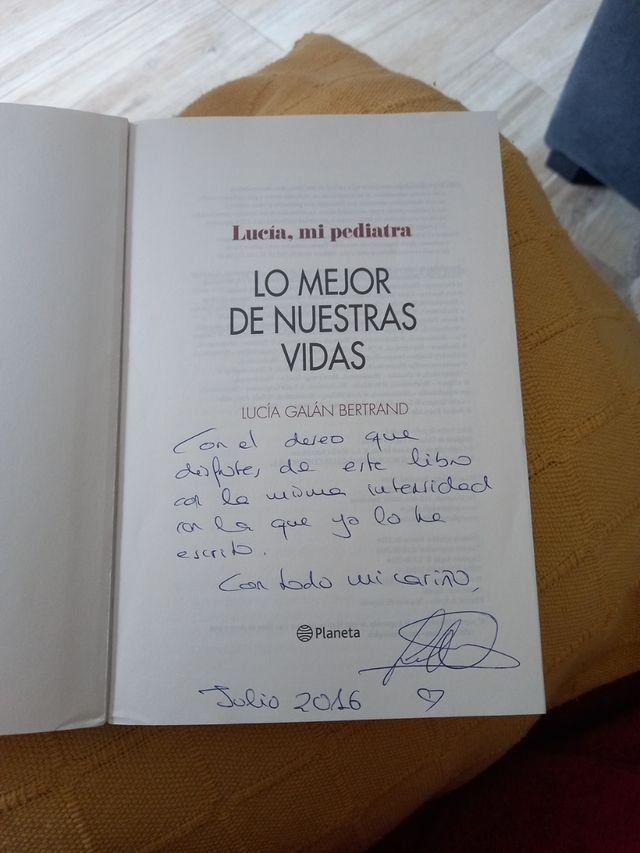 Lucía, mi pediatra
LO MEJOR
DE NUESTRAS
VIDAS
LUCÍA GALÁN BERTRAND
Con el deseo que
disfrutes de este libro
con la misma intensidad
con la que yo lo he
escrito.
Con todo mi cariño,
Planeta
Julio 2016